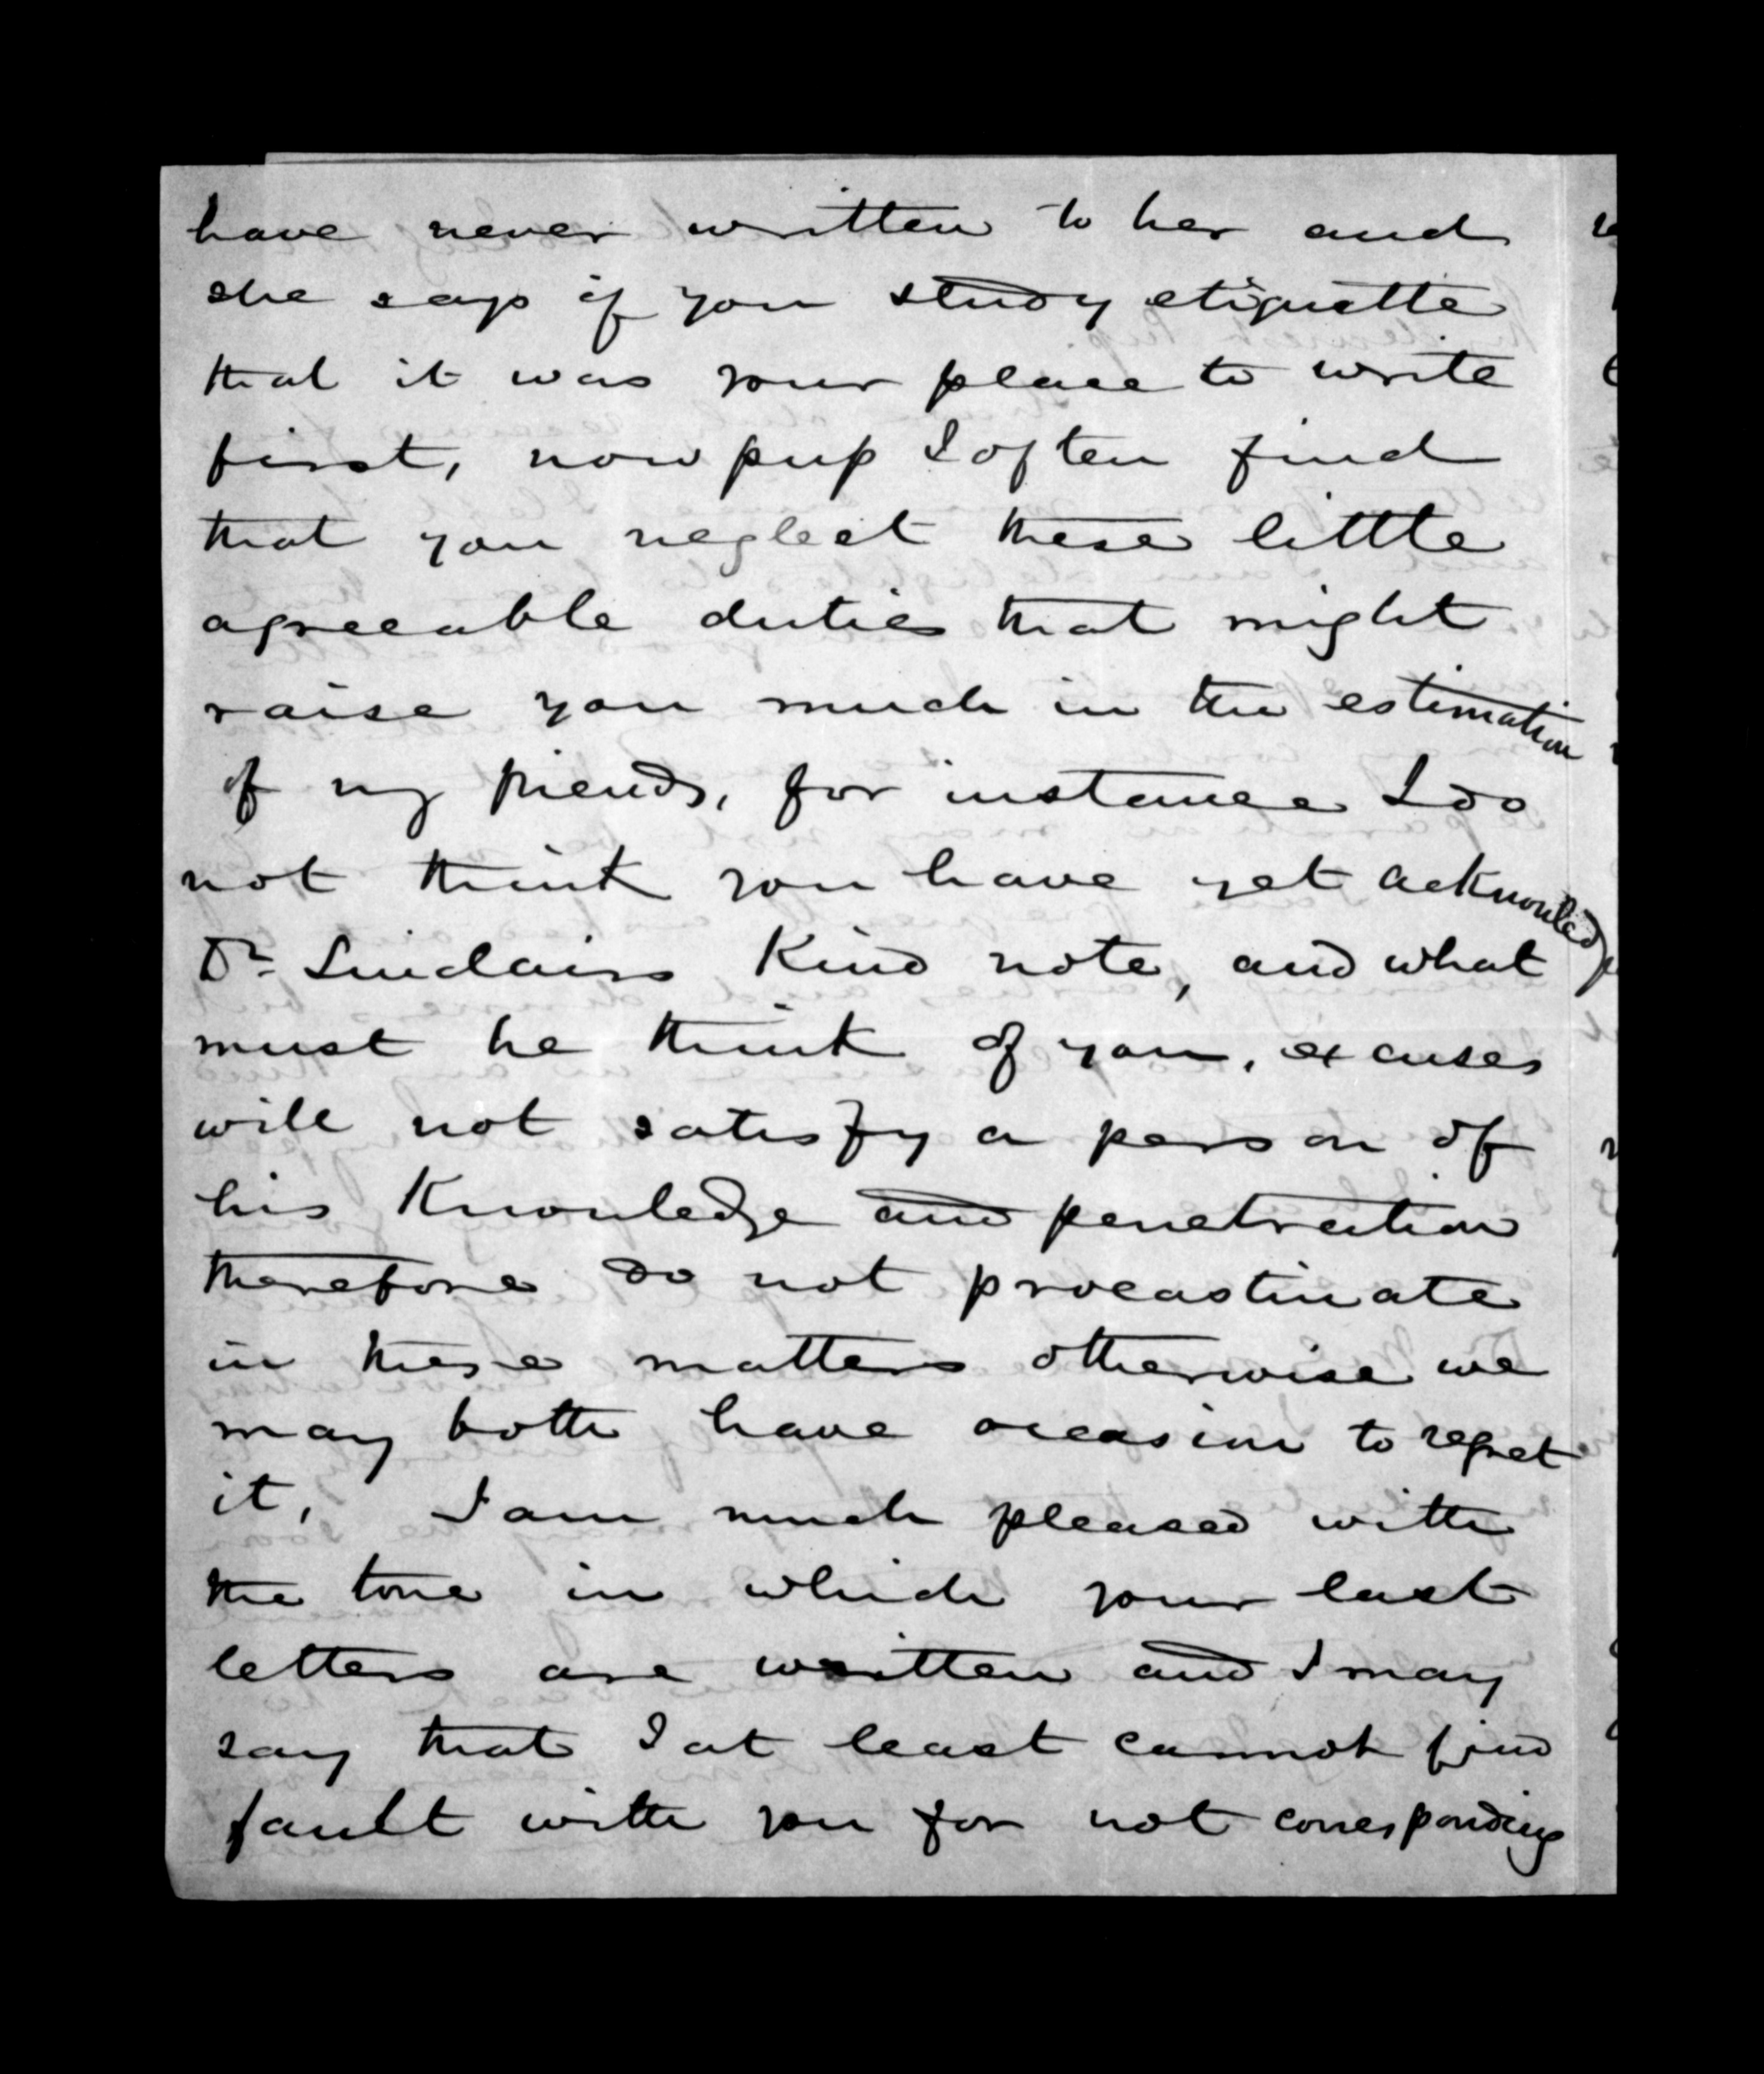 have never written to her and
she says if you study etiquette
that it was your place to write
first, now pup I often find
that you neglect these little
agreeable duties that might
raise you much in the estimation
of my friends, for instance I do
not think you have yet acknowledge
Dr Sinclairs Kind note, and what
must he think of you, excuses
will not satisfy a person of
his Knowledge and penetration
therefore do not procastinate
in these matters otherwise we
may both have occasion to regret
it, I am much pleased with
the tone in which your last
letters are written and I may
say that I at least cannot find
fault with you for not corresponding